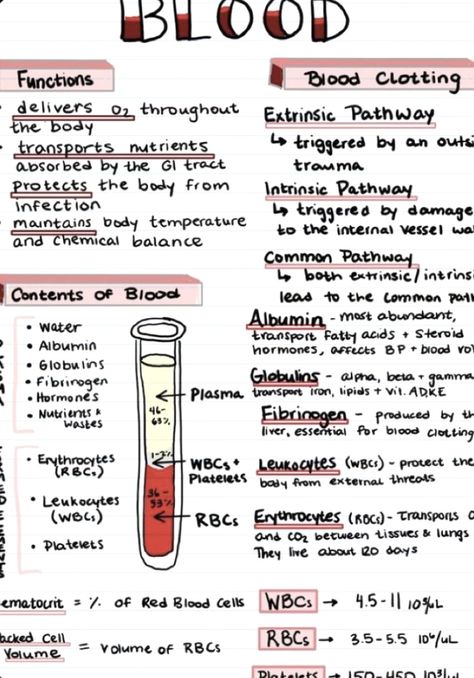 BLOOD
Functions
delivers O₂ throughout
the body
transports nutrients
absorbed by the GI tract
protects the body from
infection
maintains body temperature
and chemical balance
Blood Clotting
Extrinsic Pathway
↳ triggered by an
trauma
Intrinsic Pathway
↳ triggered by damage
to the internal vessel
Common Pathway
↳ both extrinsic/
lead to the common
Contents of Blood
• Water
• Albumin
• Globulins
• Fibrinogen
• Hormones
• Nutrients &
Wastes
• Erythrocytes
(RBCs)
• Leukocytes
(WBCs)
• Platelets
46-
63%
36-
53%
Plasma
WBCs +
Platelets
RBCs
Albumin - most abundant,
transport fatty acids + steroid
hormones, affects BP + blood
Globulins - alpha, beta + gamma
transport iron, lipids + vit. ADKE
Fibrinogen - produced by
liver, essential for blood clotting
Leukocytes (WBCs) - protect the
body from external threats
Erythrocytes (RBCs) - Transports
and CO₂ between tissues & lungs
They live about 120 days
= % of Red Blood Cells
Cell
Volume = volume of RBCs
WBCs → 4.5-11 10³/uL
RBCs → 3.5-5.5 10⁶/uL
Platelets → 150-450 10³/uL